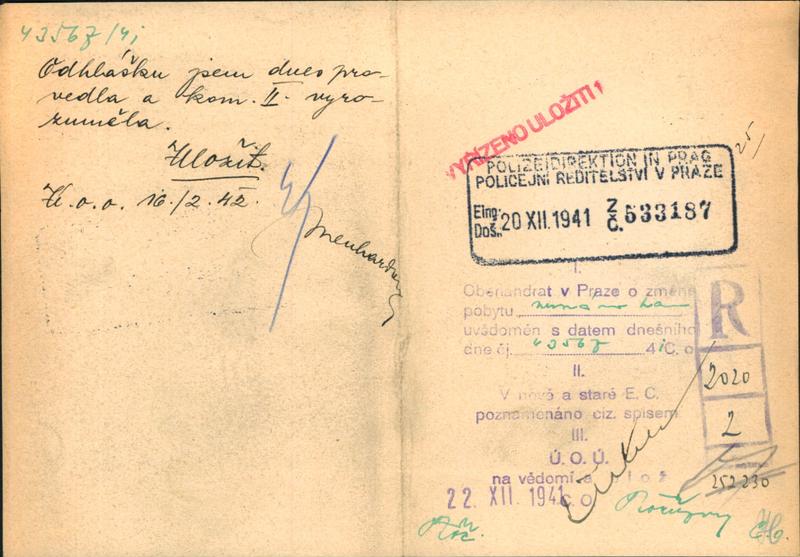 43567/4i
Odhlášku jsem dnes pro-
vedla a kom. II. vyro-
zuměla.
Uložit.
K.o.o. 16./2. 42.
VYŘÍZENO ULOŽITI!
25/
POLIZEIDIREKTION IN PRAG
POLICEJNÍ ŘEDITELSTVÍ V PRAZE
Eing.
Doš.
20 XII. 1941
Z
Č.
533187
I.
Oberlandrat v Praze o změně
pobytu
uvědoměn s datem dnešního
dne čj. 43567 4iC. o
II.
V nové a staré E. C.
poznamenáno ciz. spisem
III.
Ú. O. Ú.
na vědomí a ulož
22. XII. 1941 C. O.
R
2020
2
252230